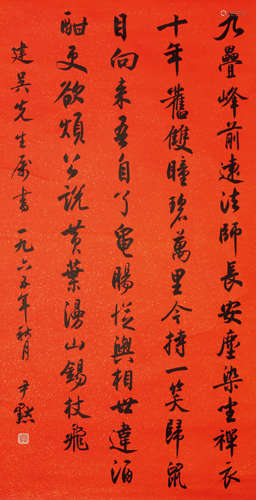 九疊峰前遠法師長安塵染坐禪衣
十年舊雙瞳碧萬里今持一笑歸鼠
目向來吾自了龜腸從與相世違酒
酣更欲煩公說黃葉漫山錫杖飛
建吳先生屬書 一九六五年秋月 尹默